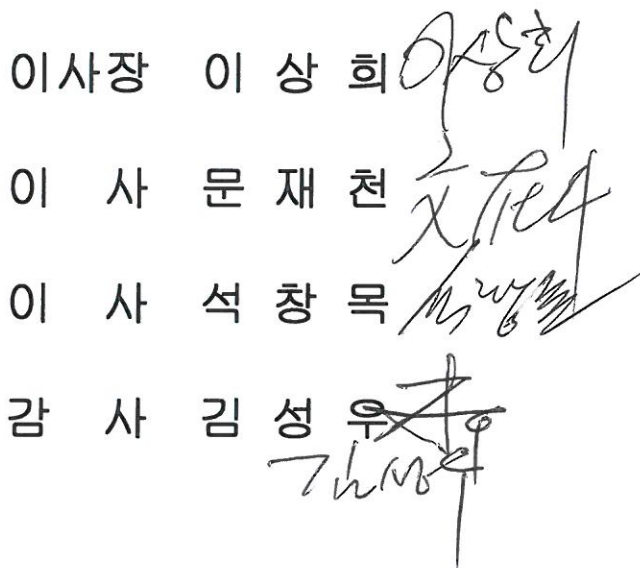 이사장 이 상 희 이상희
이 사 문 재 천
이 사 석 창 목
감 사 김 성 우
김성우